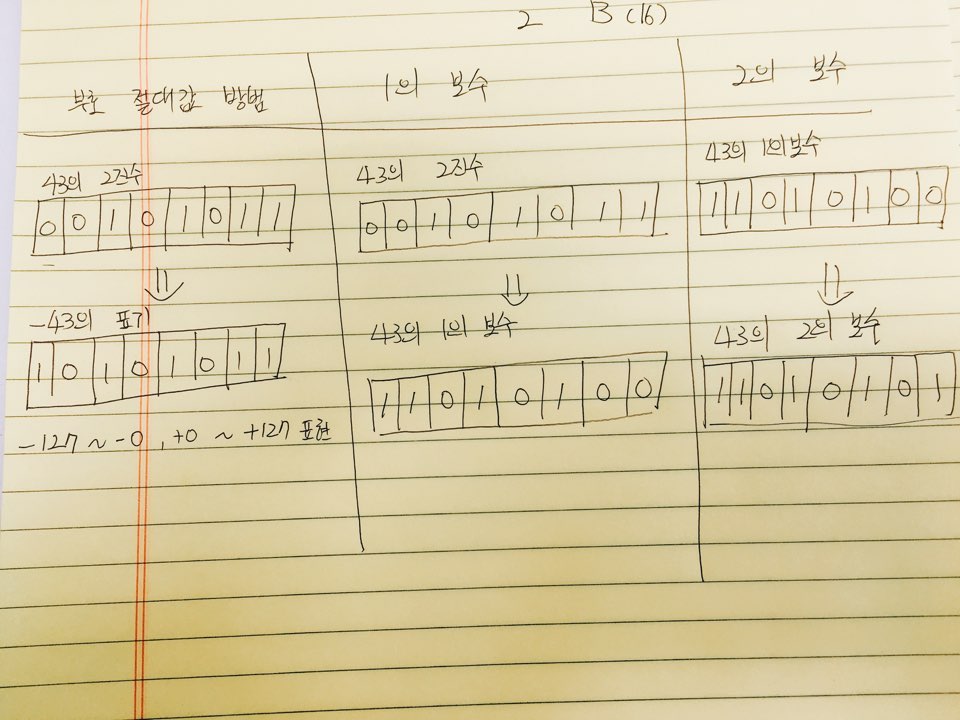 2 B (16)
부호 절대값 방법
43의 2진수
0 0 1 0 1 0 1 1
-43의 표기
1 0 1 0 1 0 1 1
-127 ~ -0 , +0 ~ +127 표현
1의 보수
43의 2진수
0 0 1 0 1 0 1 1
43의 1의 보수
1 1 0 1 0 1 0 0
2의 보수
43의 1의보수
1 1 0 1 0 1 0 0
43의 2의 보수
1 1 0 1 0 1 0 1